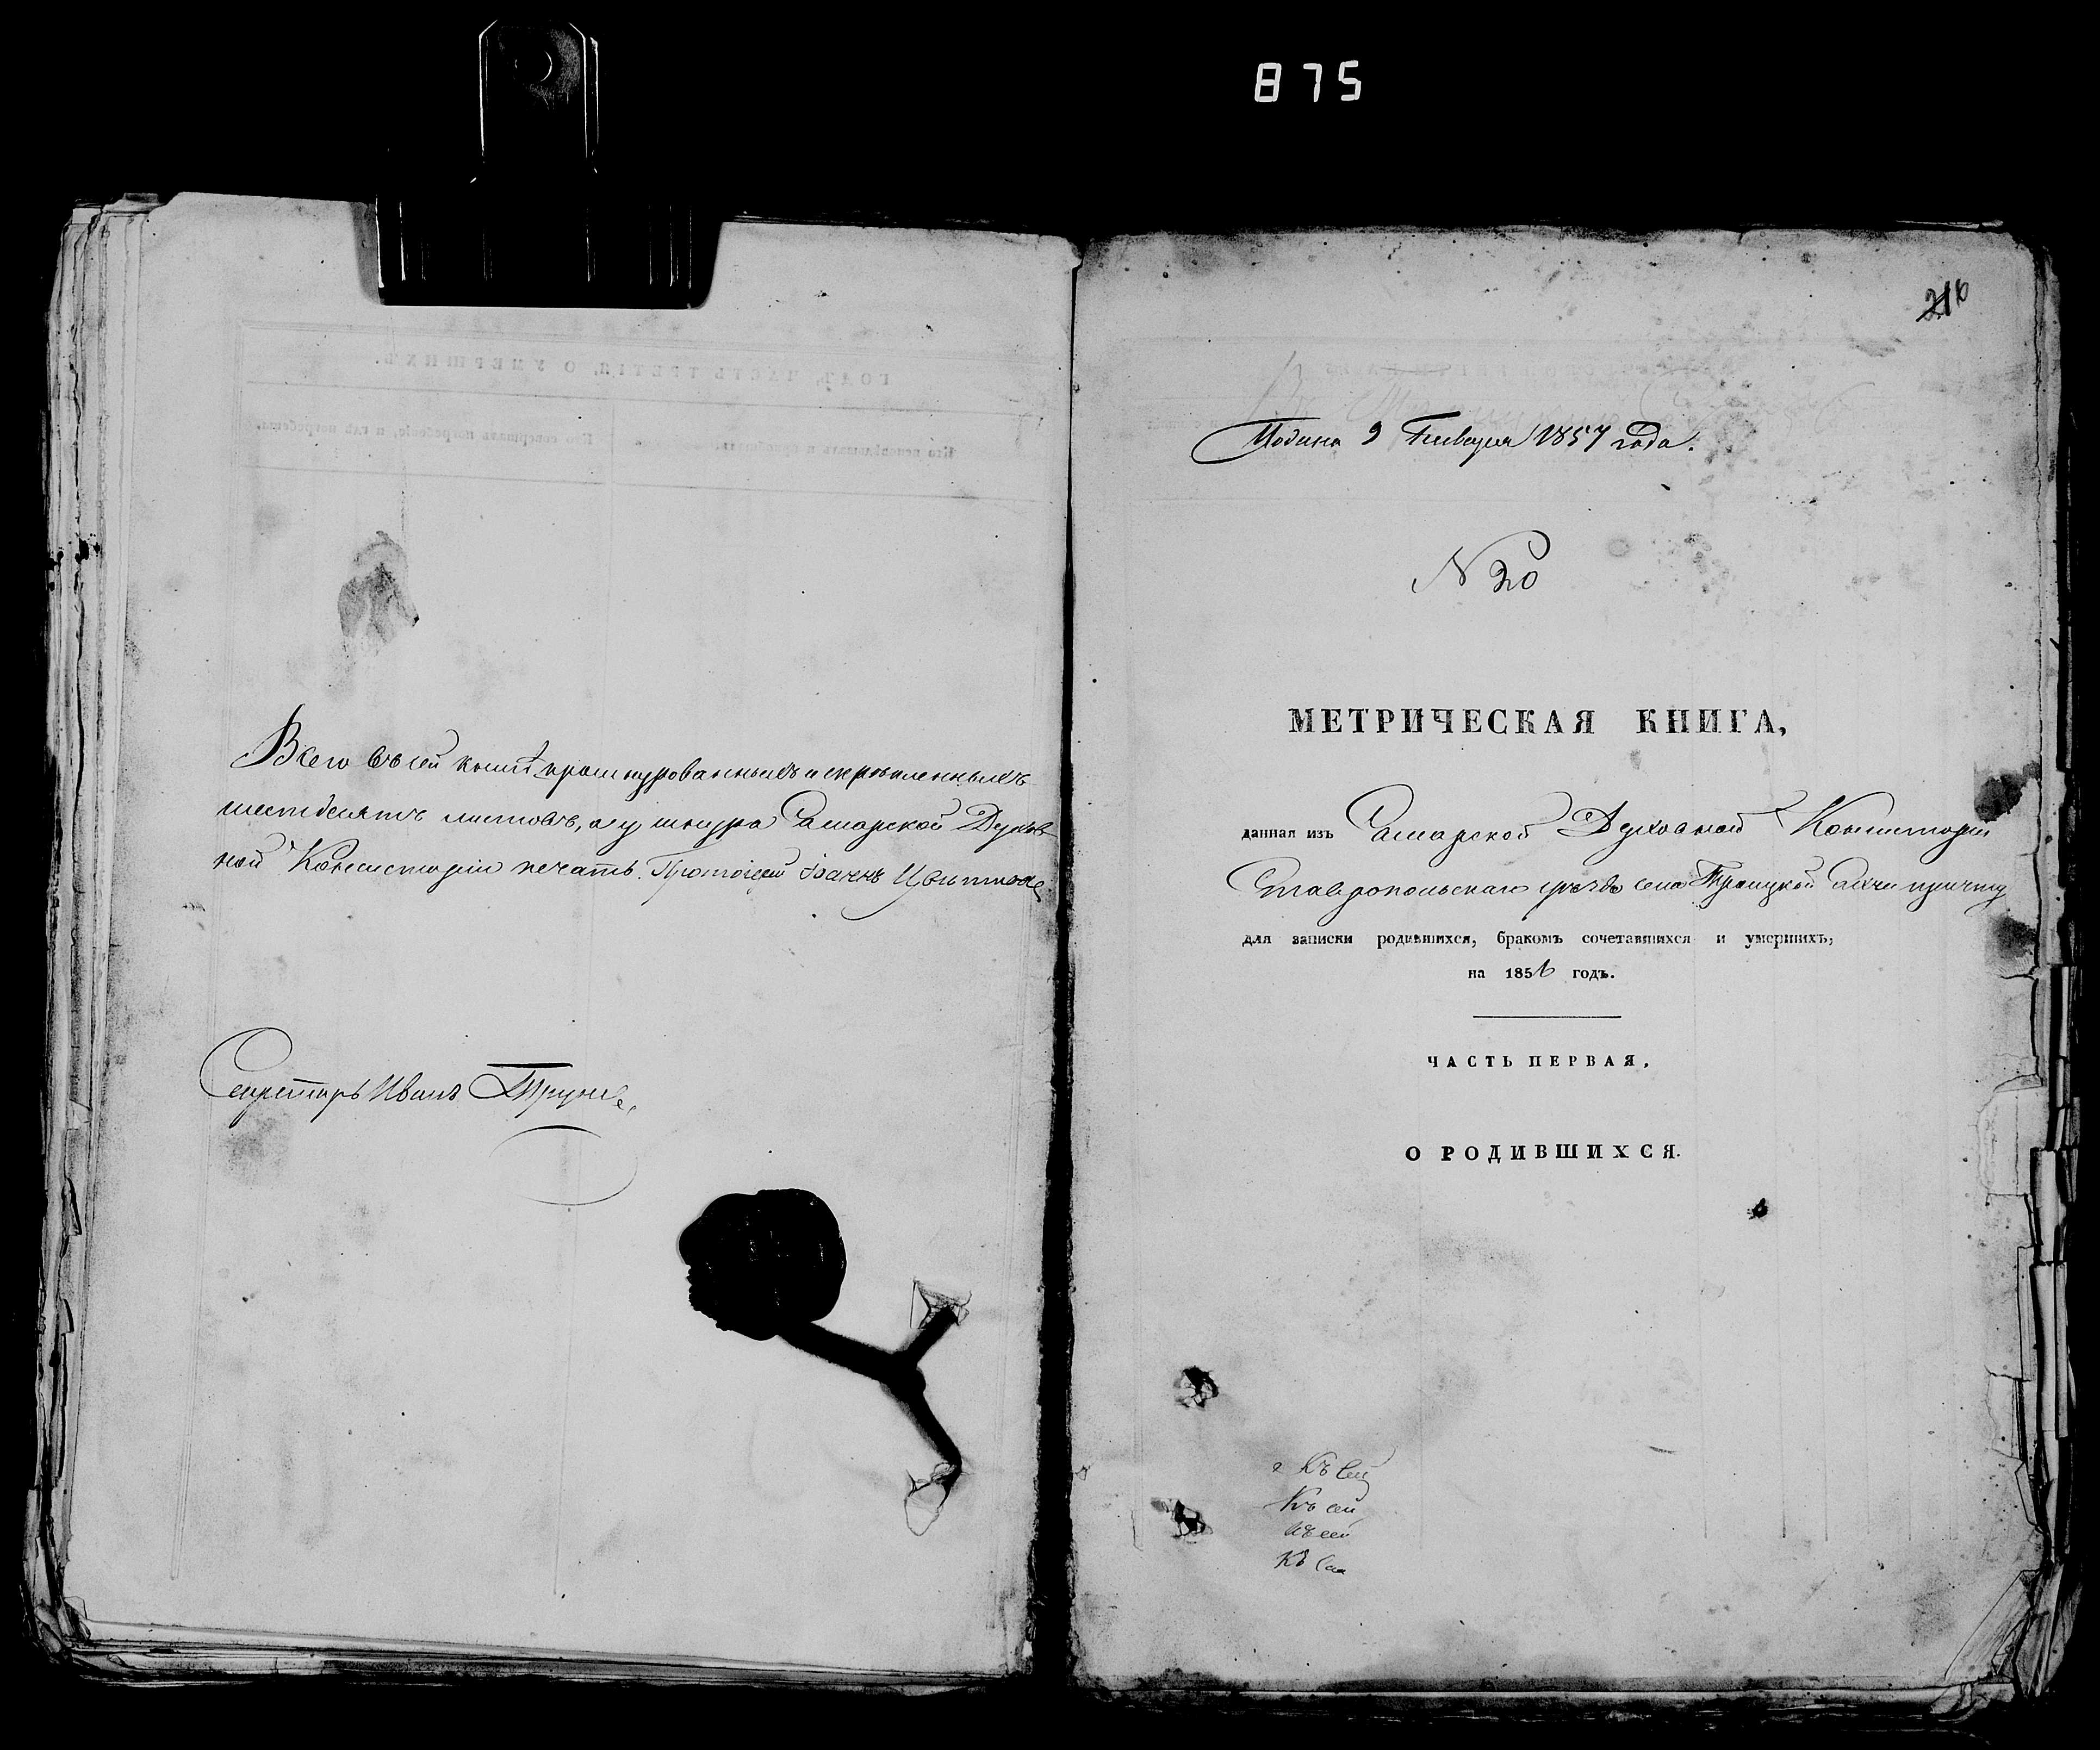 875
Всего въ сей книгѣ прошнурованныхъ и скрѣпленныхъ
шестьдесятъ листовъ, а у шнура Самарской Духов
ной Консисторіи печать. Протоіерей Іоаннъ Цвѣтковъ
Секретарь Иванъ
216
Подана 9 Генваря 1857 года.
N 20
МЕТРИЧЕСКАЯ КНИГА,
данная изъ Самарской Духовной Консисторіи
Ставропольскаго уѣзда села Троицкой причту
для записки родившихся, бракомъ сочетавшихся и умершихъ;
на 1856 годъ.
ЧАСТЬ ПЕРВАЯ.
О РОДИВШИХСЯ.
Къ сей
Къ сей
Къ сей
Къ